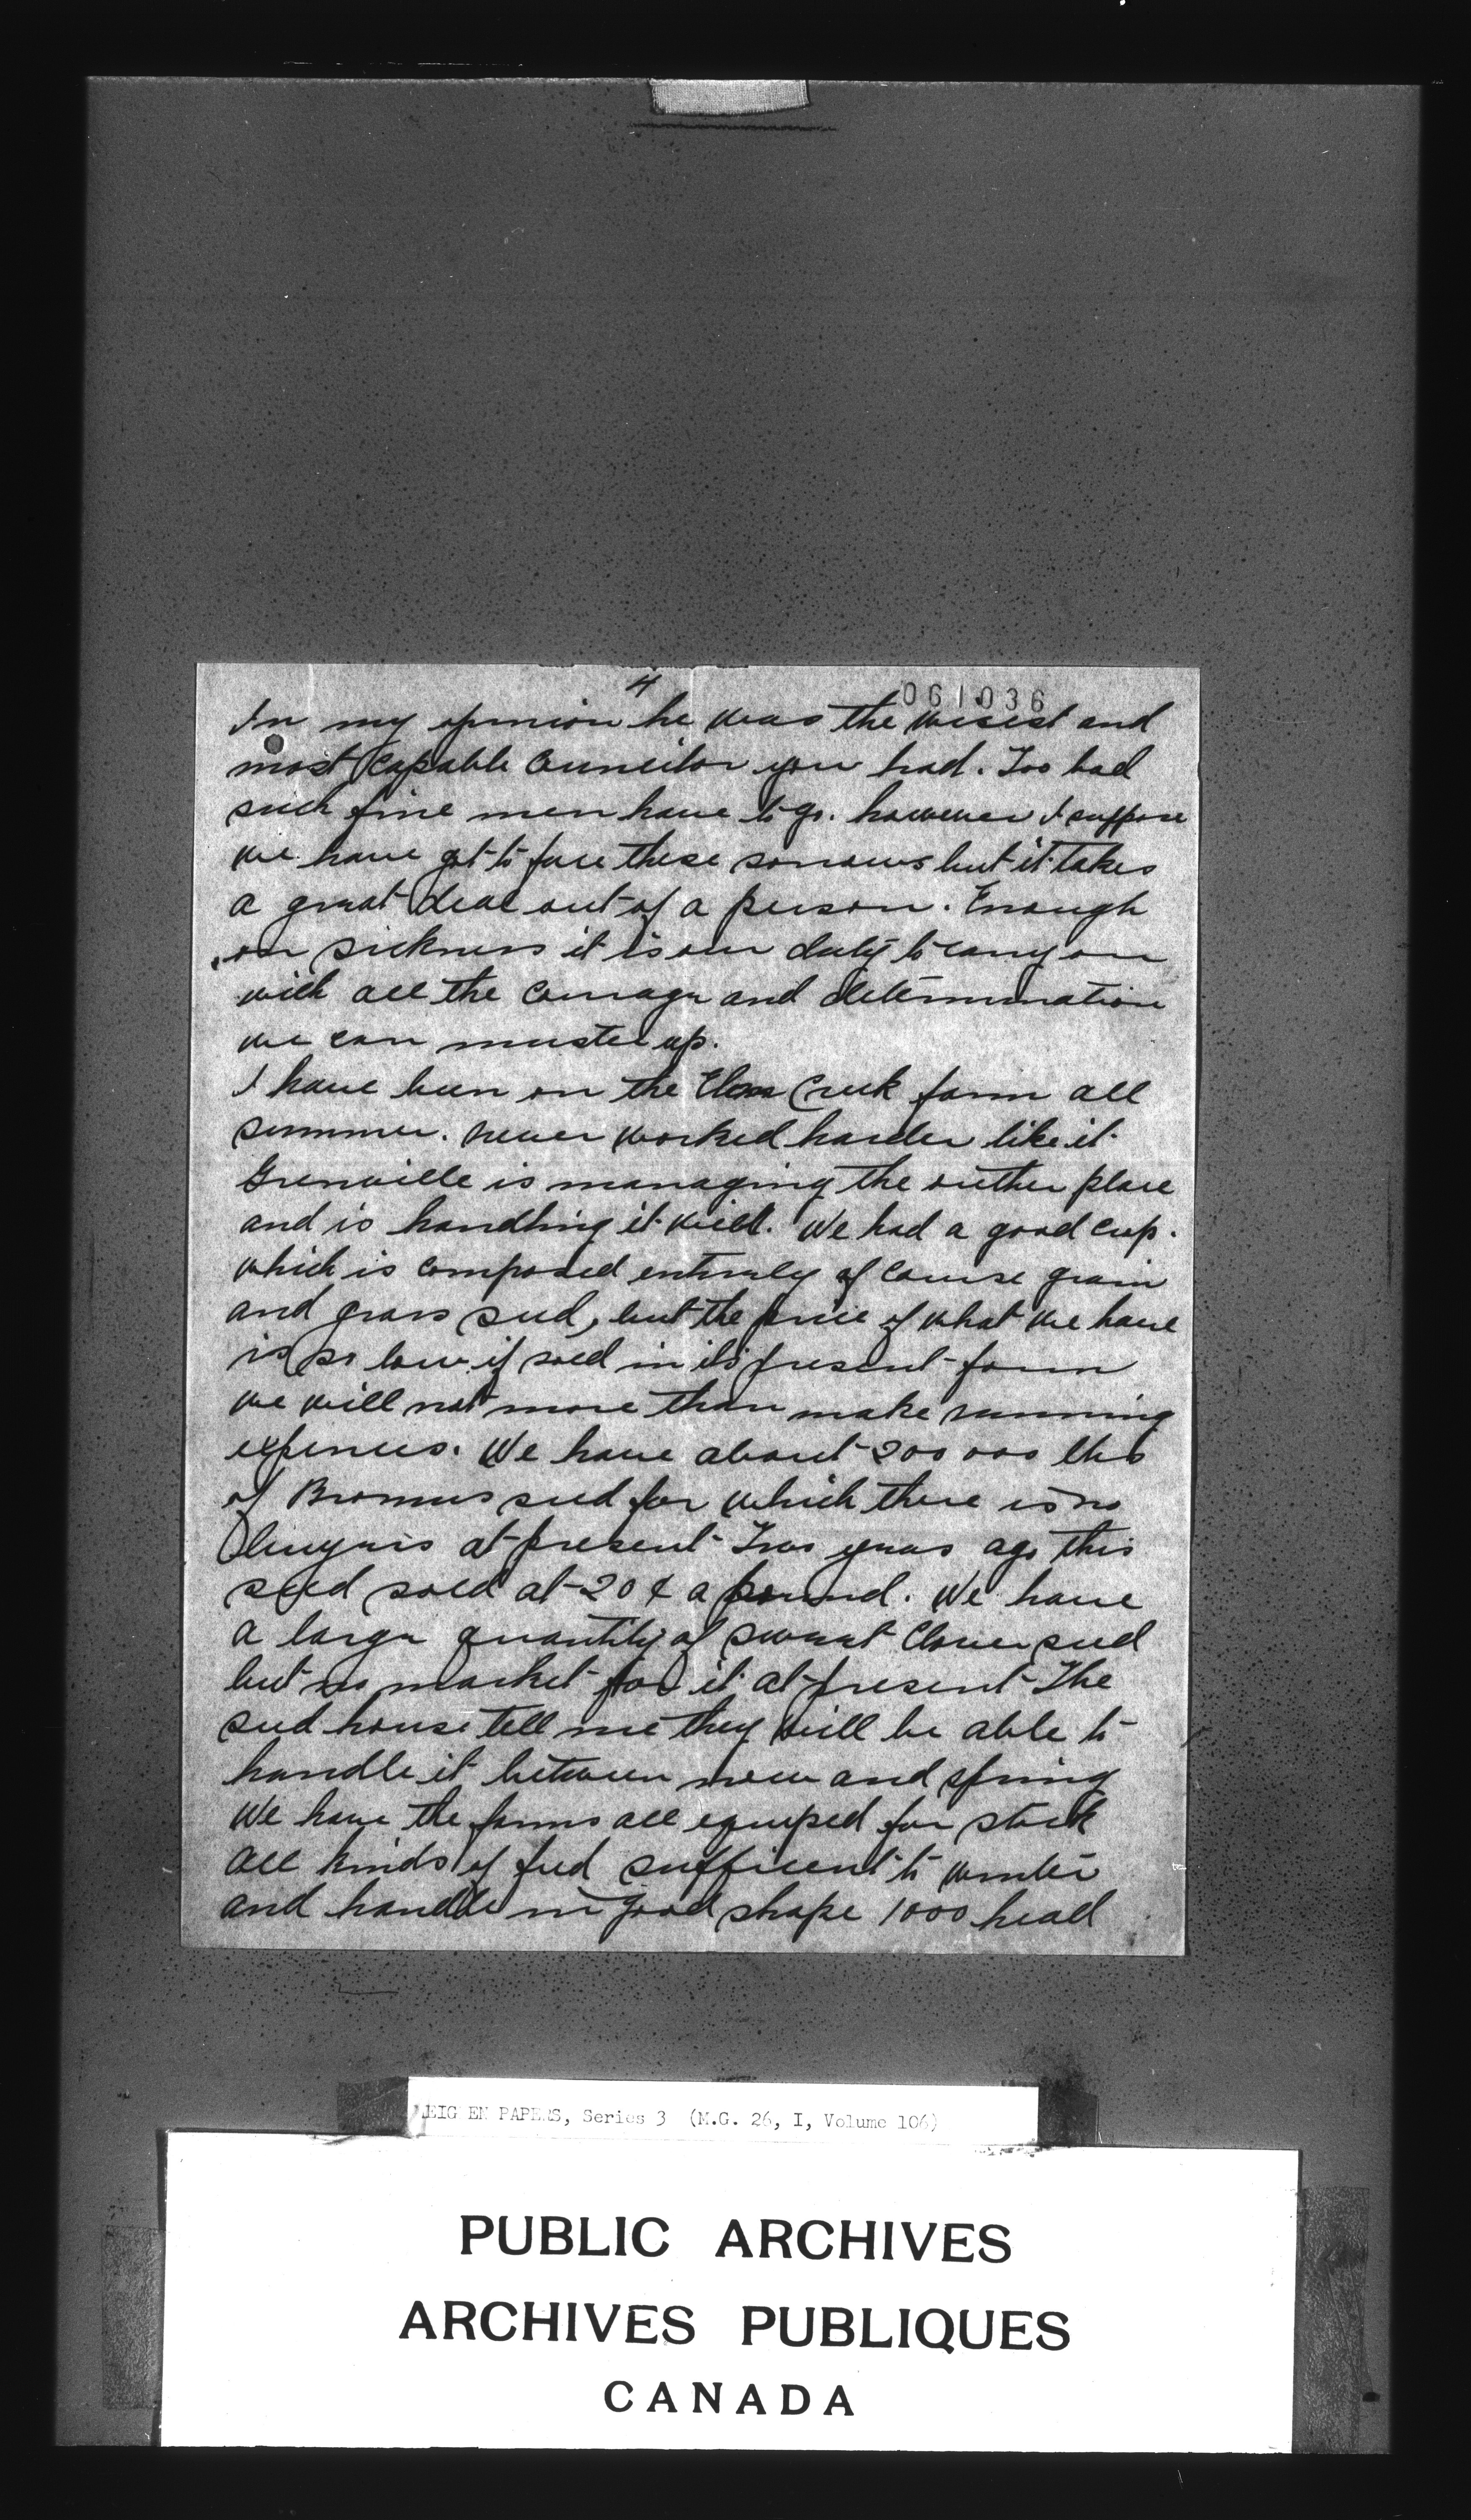 4
061036
In my opinion he was the wisest and
most capable Councilor you had. Too bad
such fine men have to go. however I suppose
we have got to face these sorrows but it takes
a great deal out of a person. Enough
on sickness it is our duty to carry on
with all the courage and determination
we can muster up.
I have been on the Elm Creek farm all
summer. never worked harder like it.
Grenville is managing the other place
and is handling it well. We had a good crop.
which is composed entirely of course grain
and grass seed, but the price of what we have
is so low if sold in its present form
we will not more than make running
expences. We have about 200 000 lbs
of Bromus seed for which there is no
at present Two years ago this
seed sold at 20 ¢ a pound. We have
a large quantity of sweet Clover seed
but no market for it at present The
seed house tell me they will be able to
handle it between now and spring
We have the farms all equiped for stock
all kinds of feed sufficent to winter
and handle in good shape 1000 head
MEIGHEN PAPERS, Series 3 (M.G. 26, I, Volume 106)
PUBLIC ARCHIVES
ARCHIVES PUBLIQUES
CANADA